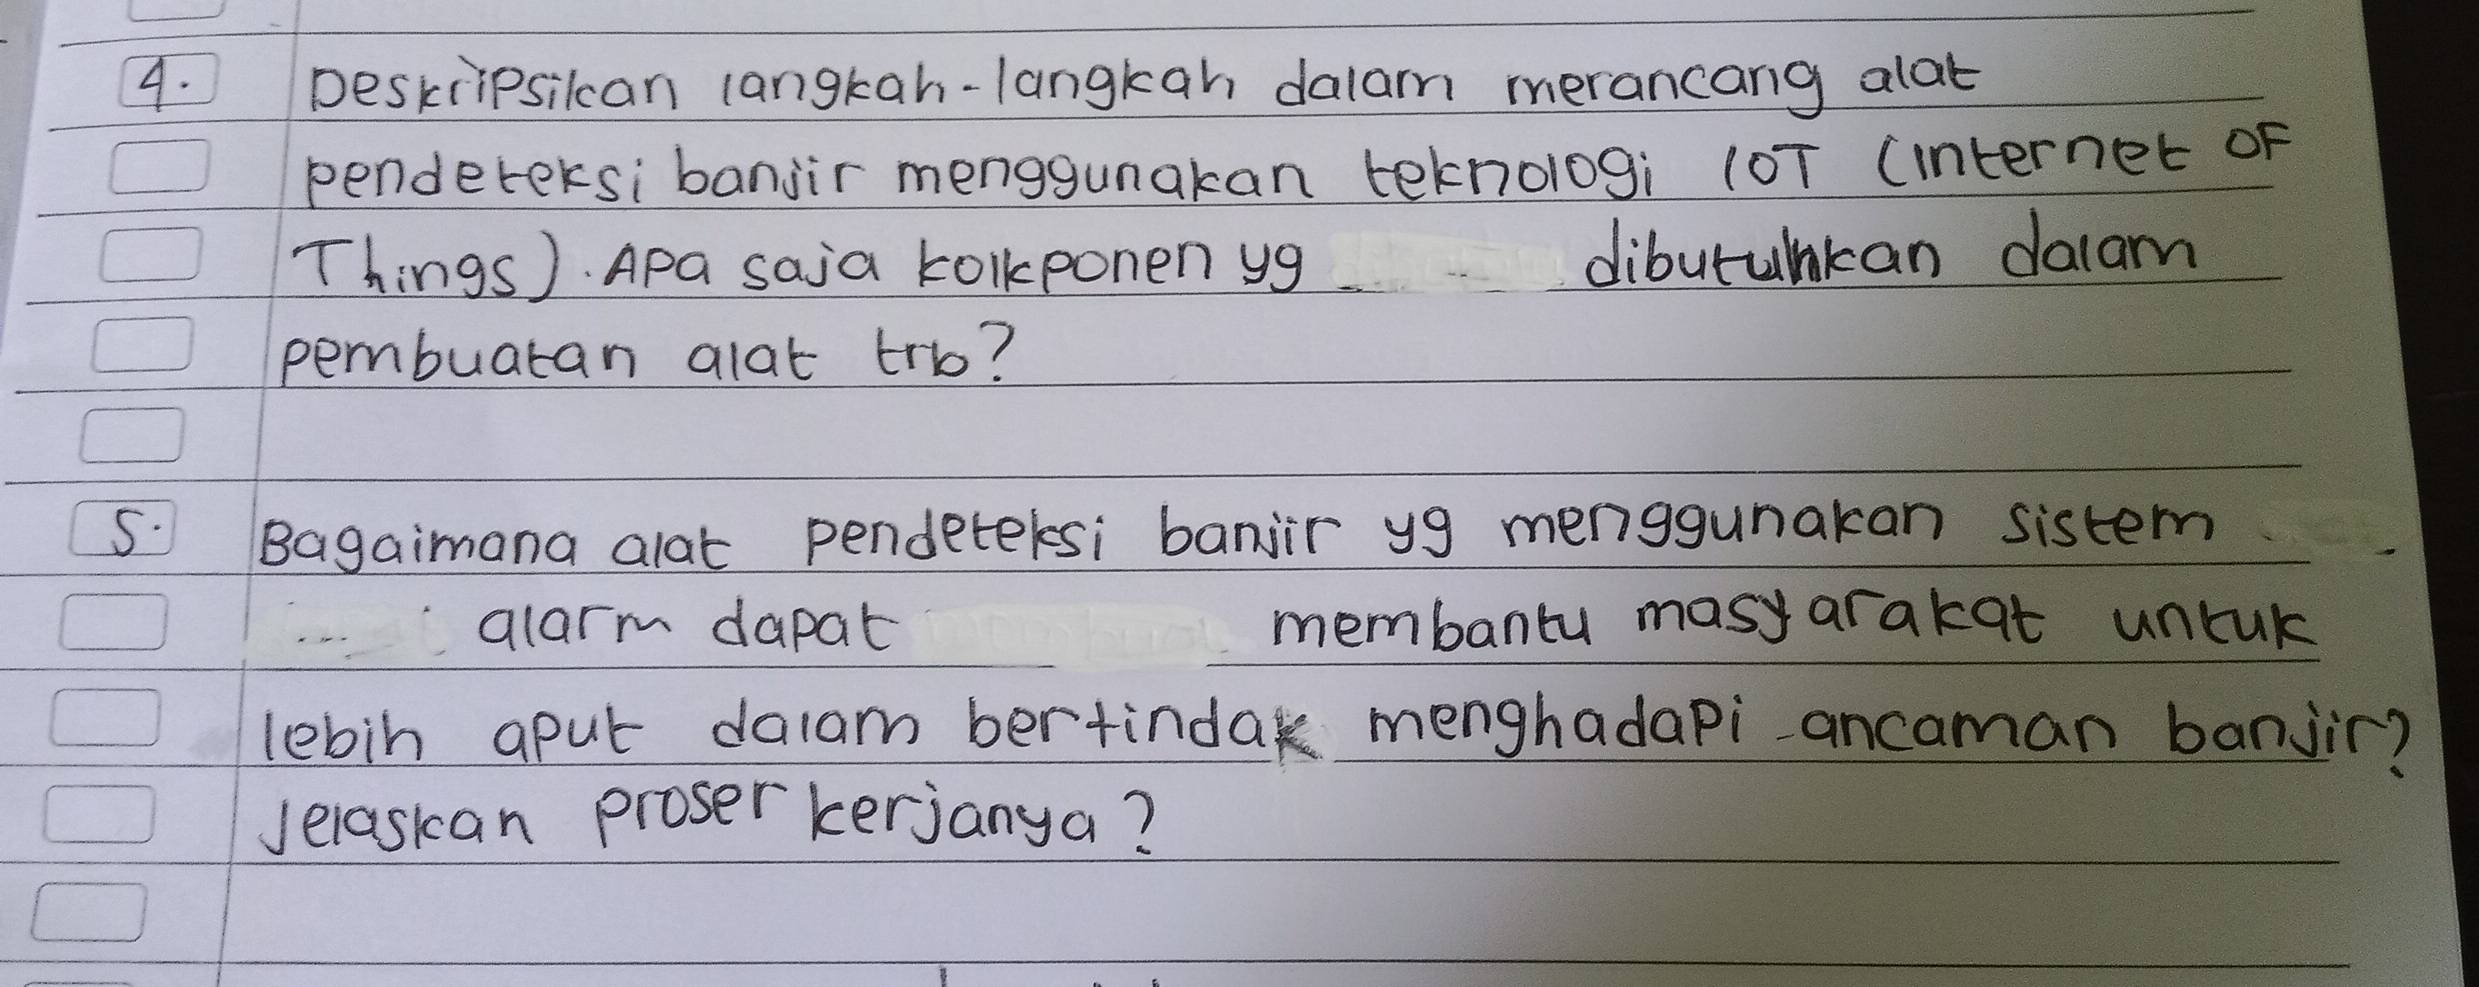 4. Deskripsikan langkah-langkah dalam merancang alat
pendeteksi banjir menggunakan teknologi IOT (Internet OF
Things). Apa saja kolkponen yg dibutuhkan dalam
pembuatan alat trb?
5. Bagaimana alat pendeteksi banjir yg menggunakan sistem
alarm dapat membantu masyarakat untuk
lebih aput dalam bertindak menghadapi ancaman banjir?
Jelaskan proser kerjanya?